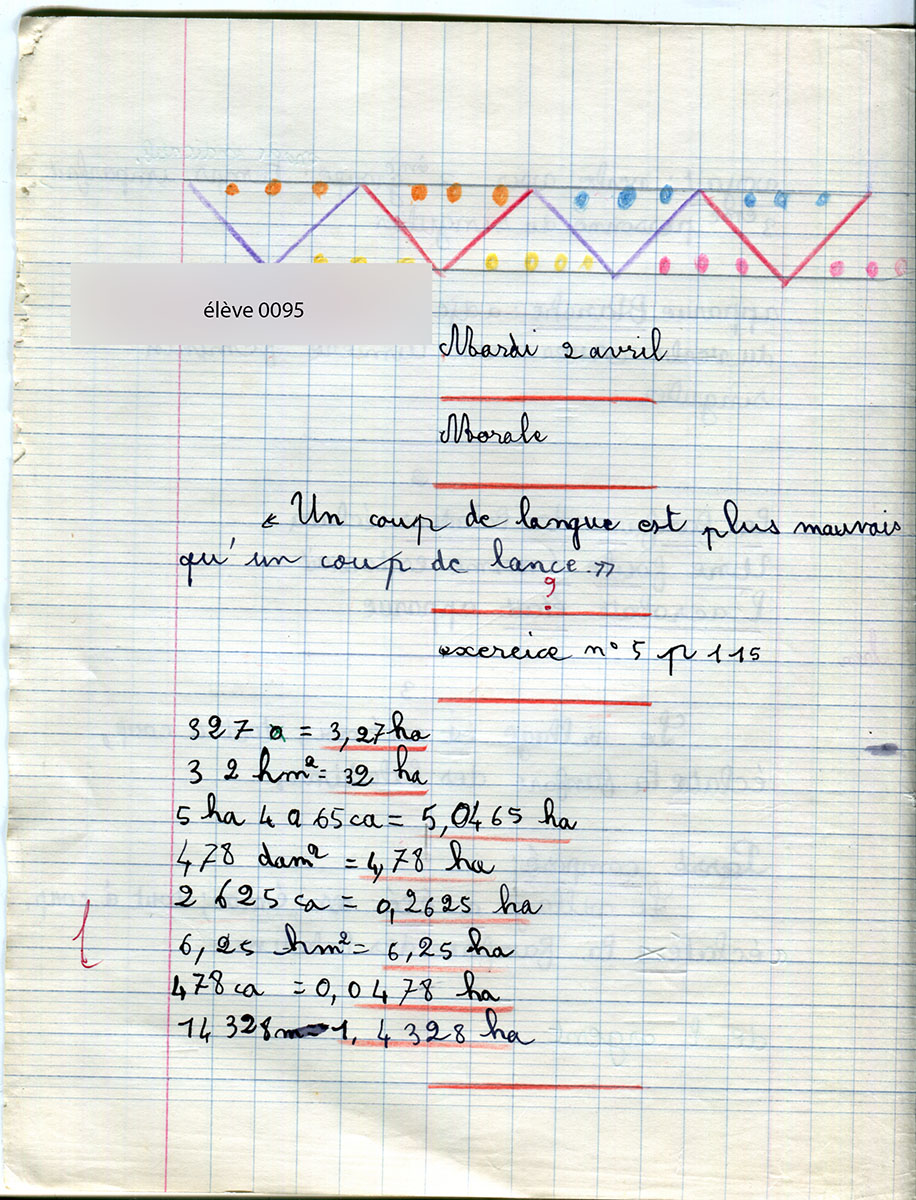 élève 0095
Mardi 2 avril
Morale
« Un coup de langue est plus mauvais
qu'un coup de lance.»
?
exercice n° 5 p 115
327 a = 3,27 ha
32 hm² = 32 ha
5 ha 4 a 65 ca = 5,0465 ha
478 dam² = 4,78 ha
2 625 ca = 0,2625 ha
6,25 hm² = 6,25 ha
478 ca = 0,0478 ha
14 328 m 1,4328 ha